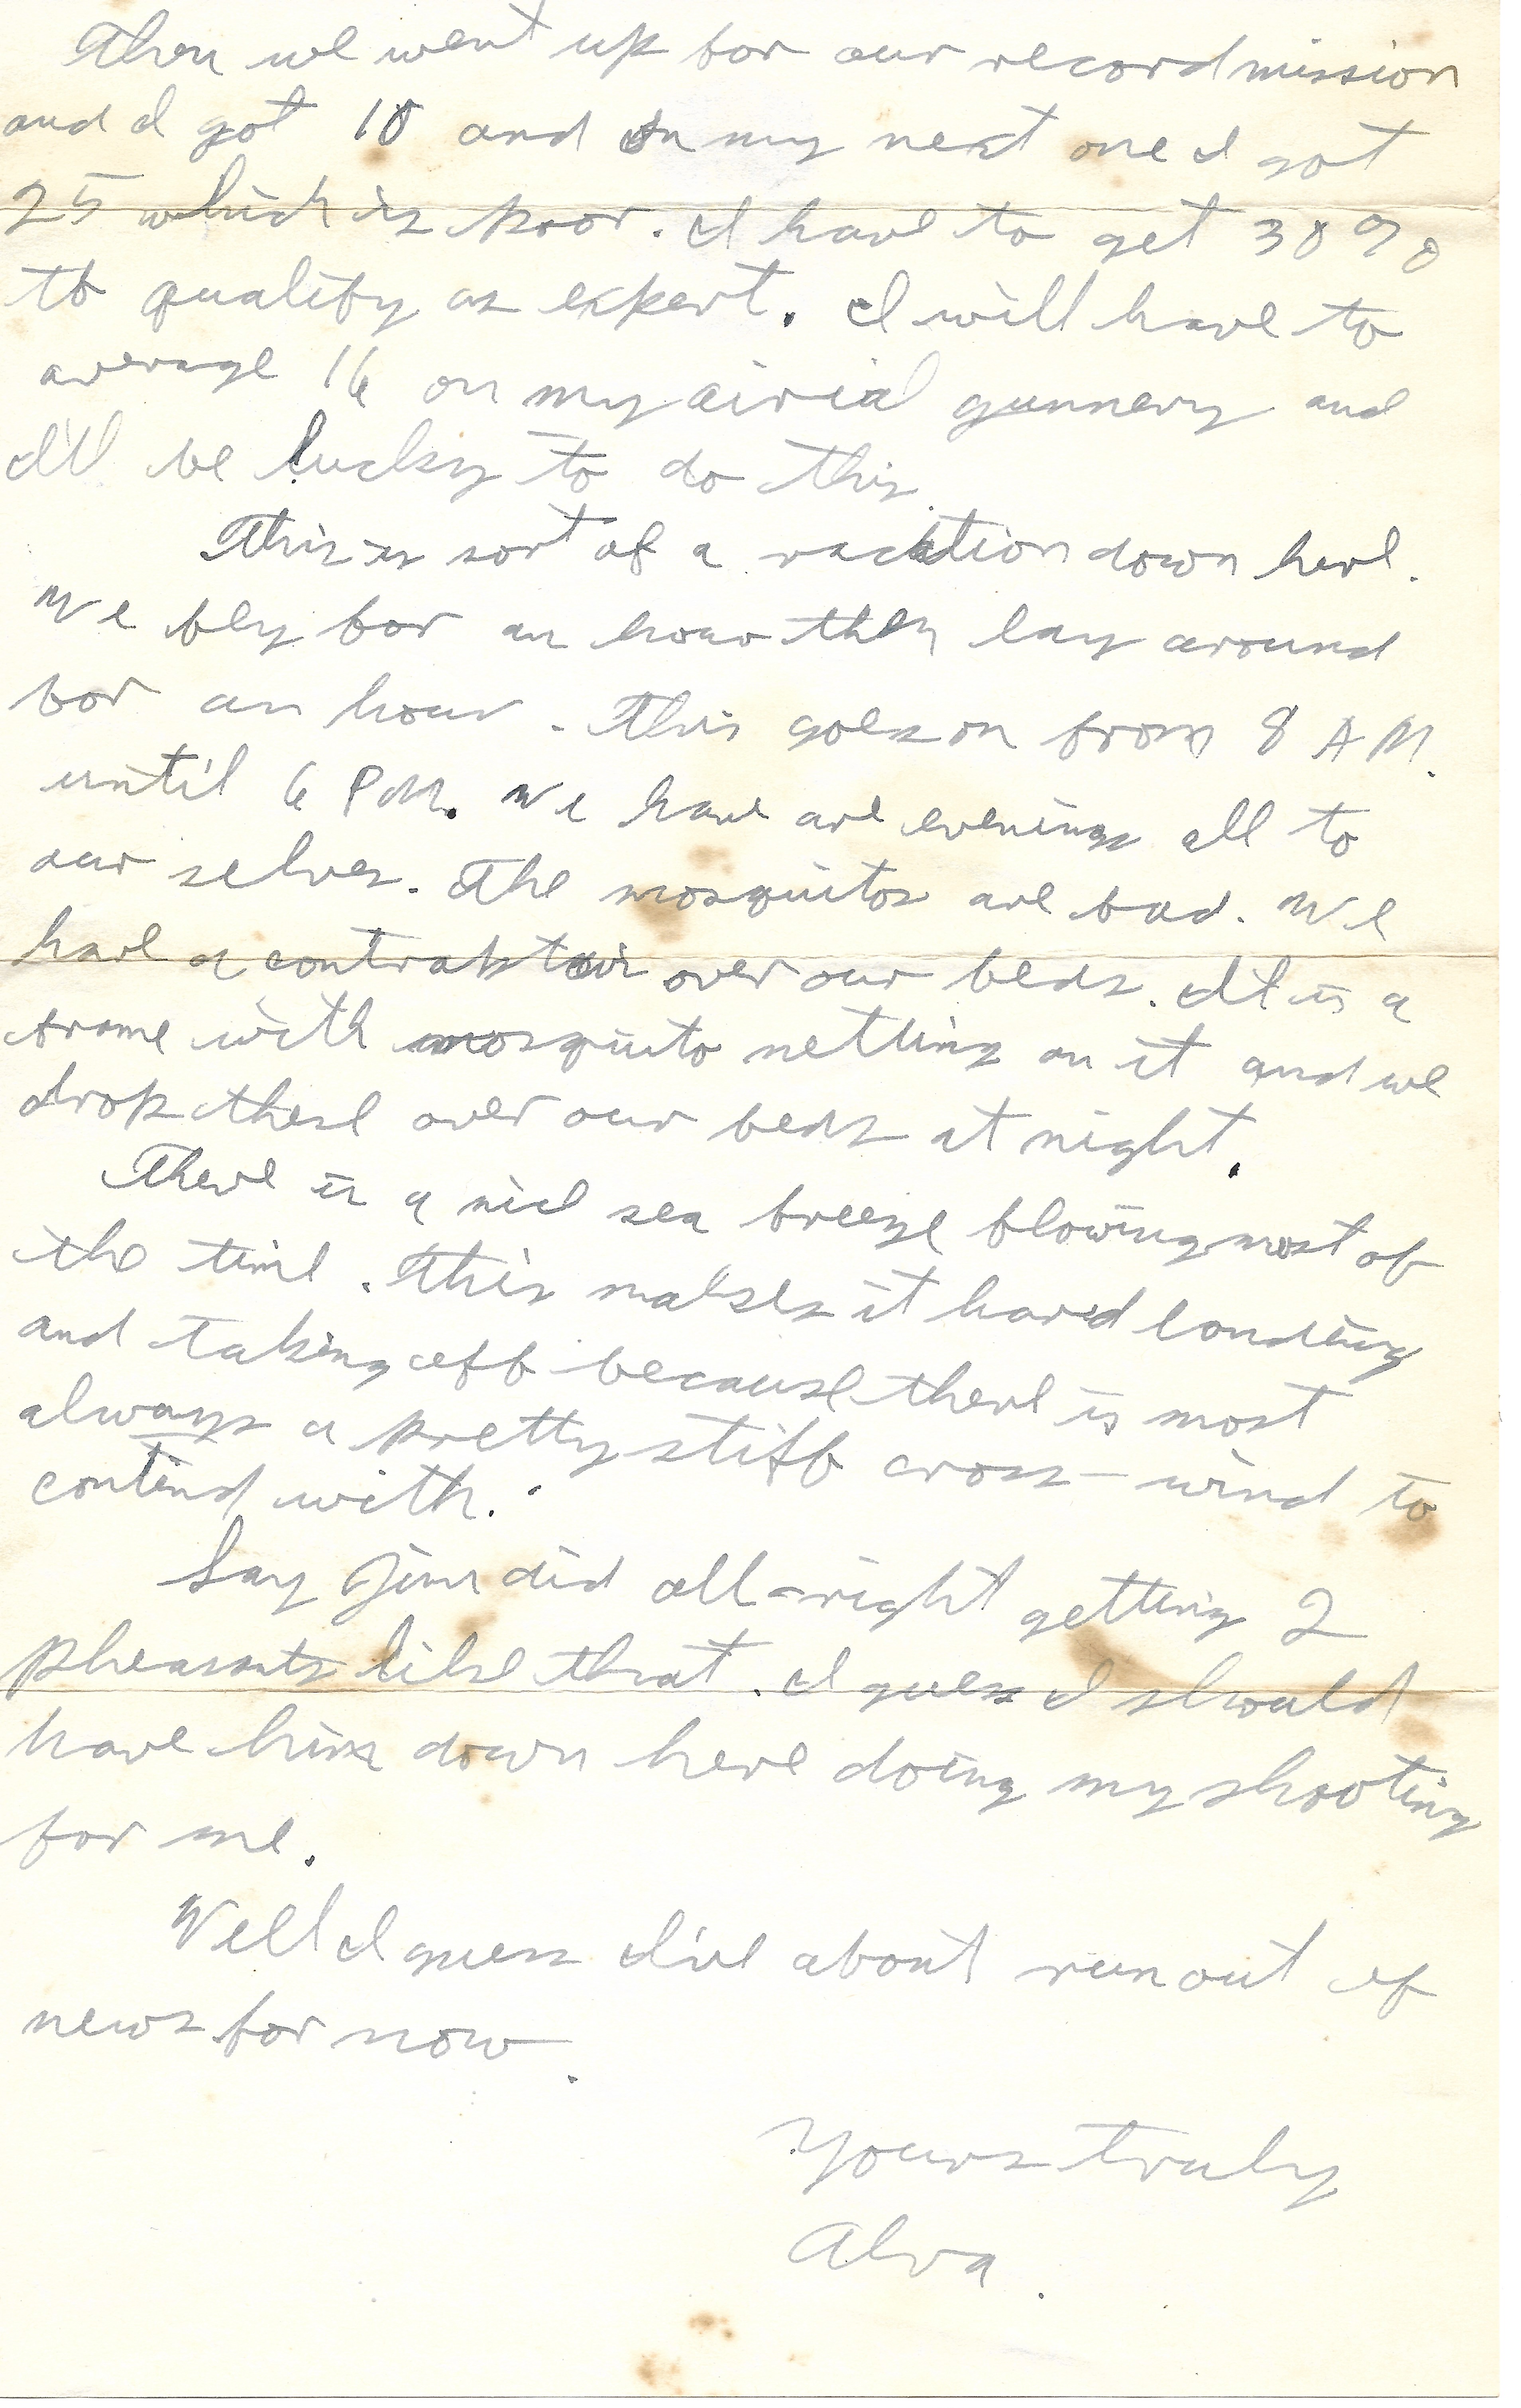 Then we went up for our record mission
and I got 10 and on my next one I got
25 which is poor. I have to get 30%
to qualify as expert. I will have to
average 16 on my airial gunnery and
I'll be lucky to do this.
This is sort of a vacation down here.
We fly for an hour then lay around
for an hour. This goes on from 8 AM.
until 6 PM. We have are evenings all to
our selves. The mosquitos are bad. We
have a over our beds. It is a
frame with mosquito netting on it and we
drop these over our beds at night.
There is a nice sea breeze blowing most of
the time. This makes it hard landing
and taking off because there is most
always a pretty stiff cross-wind to
contend with.
Say Jim did all-right getting 2
pheasants like that. I guess I should
have him down here doing my shooting
for me.
Well I guess I've about run out of
news for now.
Yours truly
Alva.